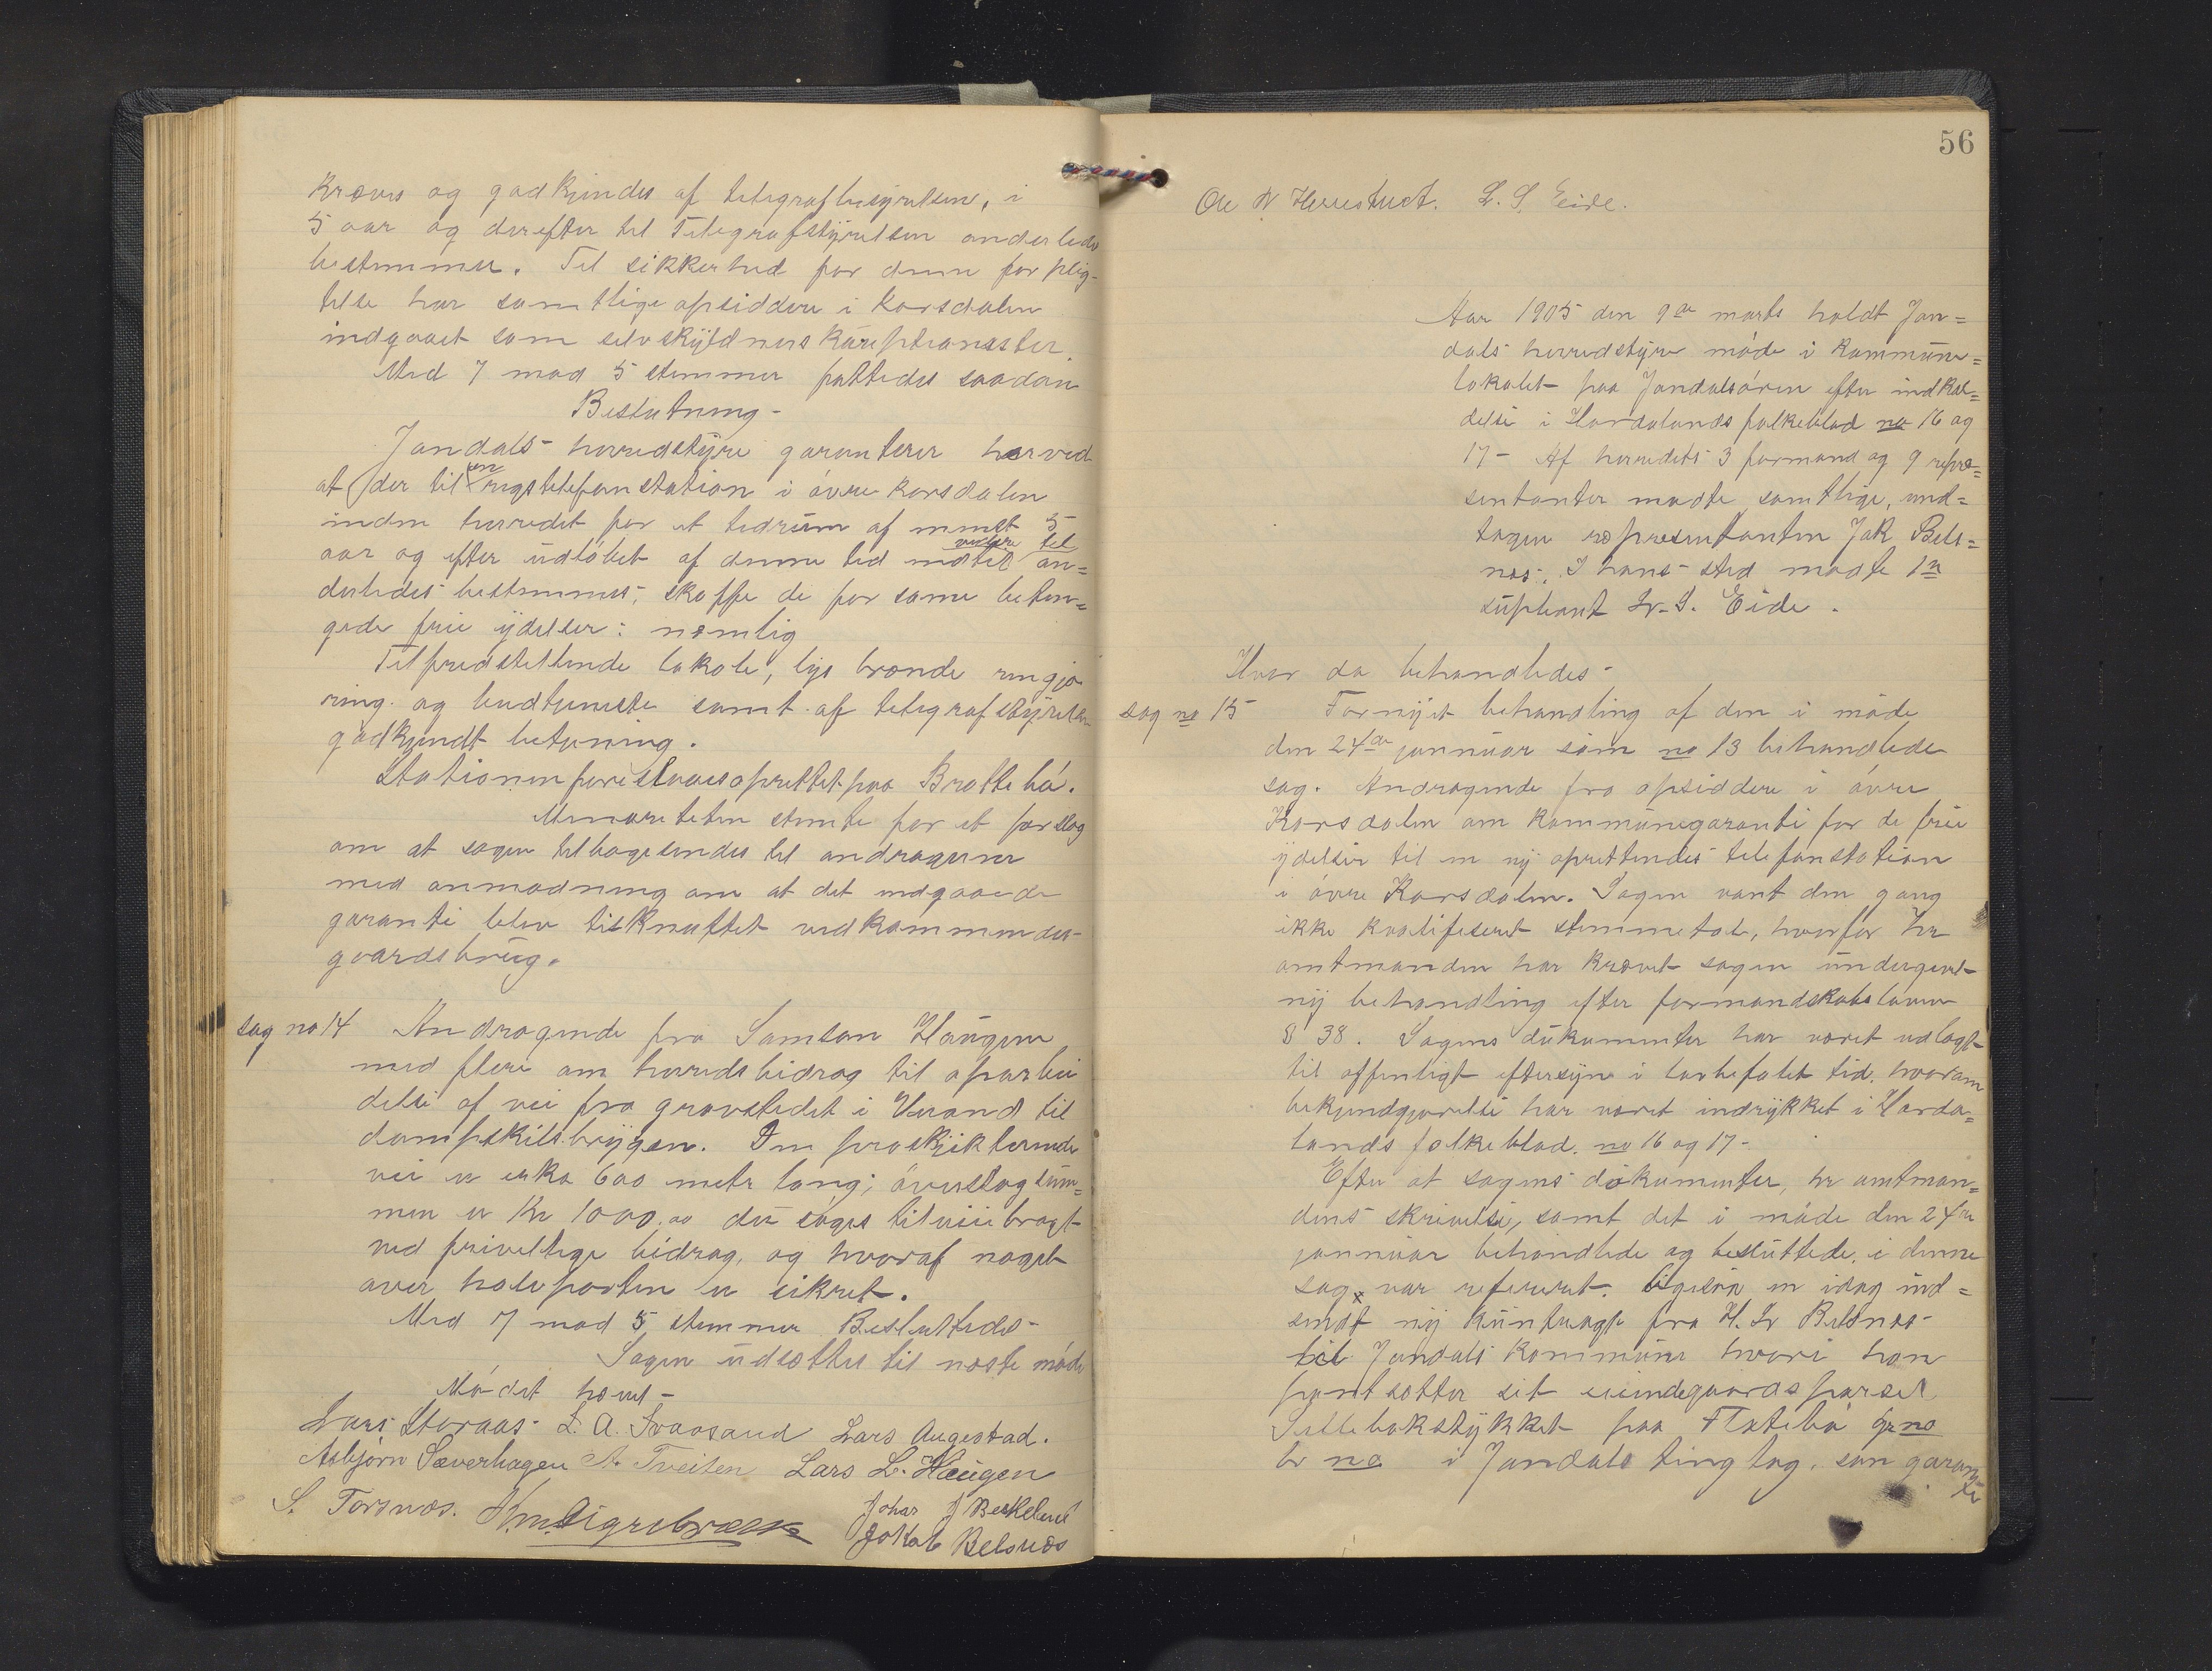 kræves og godkjendes af telegrafbestyrelsen, i
5 aar og derefter til Telegrafstyrelsen anderledes
bestemmer. Til sikkerhed for denne forplig-
telse har samtlige opsiddere i Korsdalen
indgaaet som selvskyldners kautionister.
Med 7 mod 5 stemmer fattedes saadan
Beslutning-
Jondals herredstyre garanterer herved
at der til en rigstelefonstation i øvre Korsdalen
inden herredet for et tidsrum af mindst 5
aar og efter udløbet af denne tid indtil videre til an=
derledes bestemmes, skaffe de for samme beten=
gede frie ydelser: nemlig
Tilfredstillende lokale, lys brænde rengjø
ring. og budtjeneste samt af telegrafstyrelsen
godkjendt betjening.
Stationen forestaaes oprettet paa Brattebø.
Minoriteten stemte for et forslag
om at sagen tilbagesendes til andragerne
med anmodning om at det indgaaede
garanti blev tilknyttet vedkommendes
gaardsbrug.
sag no 14 Andragende fra Samson Haugen
med flere om herredsbidrag til oparbei
delse af vei fra gravstedet i Vikand til
dampskibsbryggen. Den prosjekterede
vei er cirka 600 meter lang; overslagsum=
men er Kr 1000.00 der søges tilveiebragt
ved frivillige bidrag, og hvoraf noget
over halvparten er sikret.
Med 7 mod 5 stemmer Besluttedes-
Sagen udsættes til næste møde
Mødet hævet-
Lars Storaas. L. A. Svaasand Lars Augestad.
Asbjørn Sæverhagen A. Tveiten Lars L. Haugen
S. Torsnæs. Johas J Berkeland
Jokob Belsnæs
56
Ole N Herrestvet. L. S. Eide.
Aar 1905 den 9de marts holdt Jon=
dals herredstyre møde i kommune=
lokalet paa Jondalsøren efter indkal=
delse i Hardalands folkeblad no 16 og
17- Af herredets 3 formænd og 9 repræ=
sentanter mødte samtlige, und=
tagen repræsentanten Jak Bels=
næs. I hans sted mødte 1ste
suppleant Lr. S. Eide.
Hvor da behandledes-
sag no 15 Fornyet behandling af den i møde
den 24de januar som no 13 behandlede
sag. Andragende fra opsiddere i øvre
Korsdalen om kommunegaranti for de frie
ydelser til en ny oprettendes telefonstation
i øvre Korsdalen. Sagen vant den gang
ikke kvalifiseret stemmetal, hvorfor hr
amtmanden har krævet sagen undergivet
ny behandling efter formandskabsloven
§ 38. Sagens dokumenter har været udlagt
til offentligt eftersyn i lovbefalet tid. hvorom
bekjendtgjørelse har været indrykket i Harda=
lands folkeblad. no 16 og 17-
Efter at sagens dokumenter, hr amtman=
dens skrivelse, samt det i møde den 24de
januar behandlede og besluttede. i denne
sag, var refereret. ligesaa en idag ind=
sendt ny kontragt fra H. Lr Belsnæs
til Jondals kommune hvori han
pantsætter sit eiendegaards parsel
paa Flatebø gr no
br no i Jondals tinglag, som garan
ti